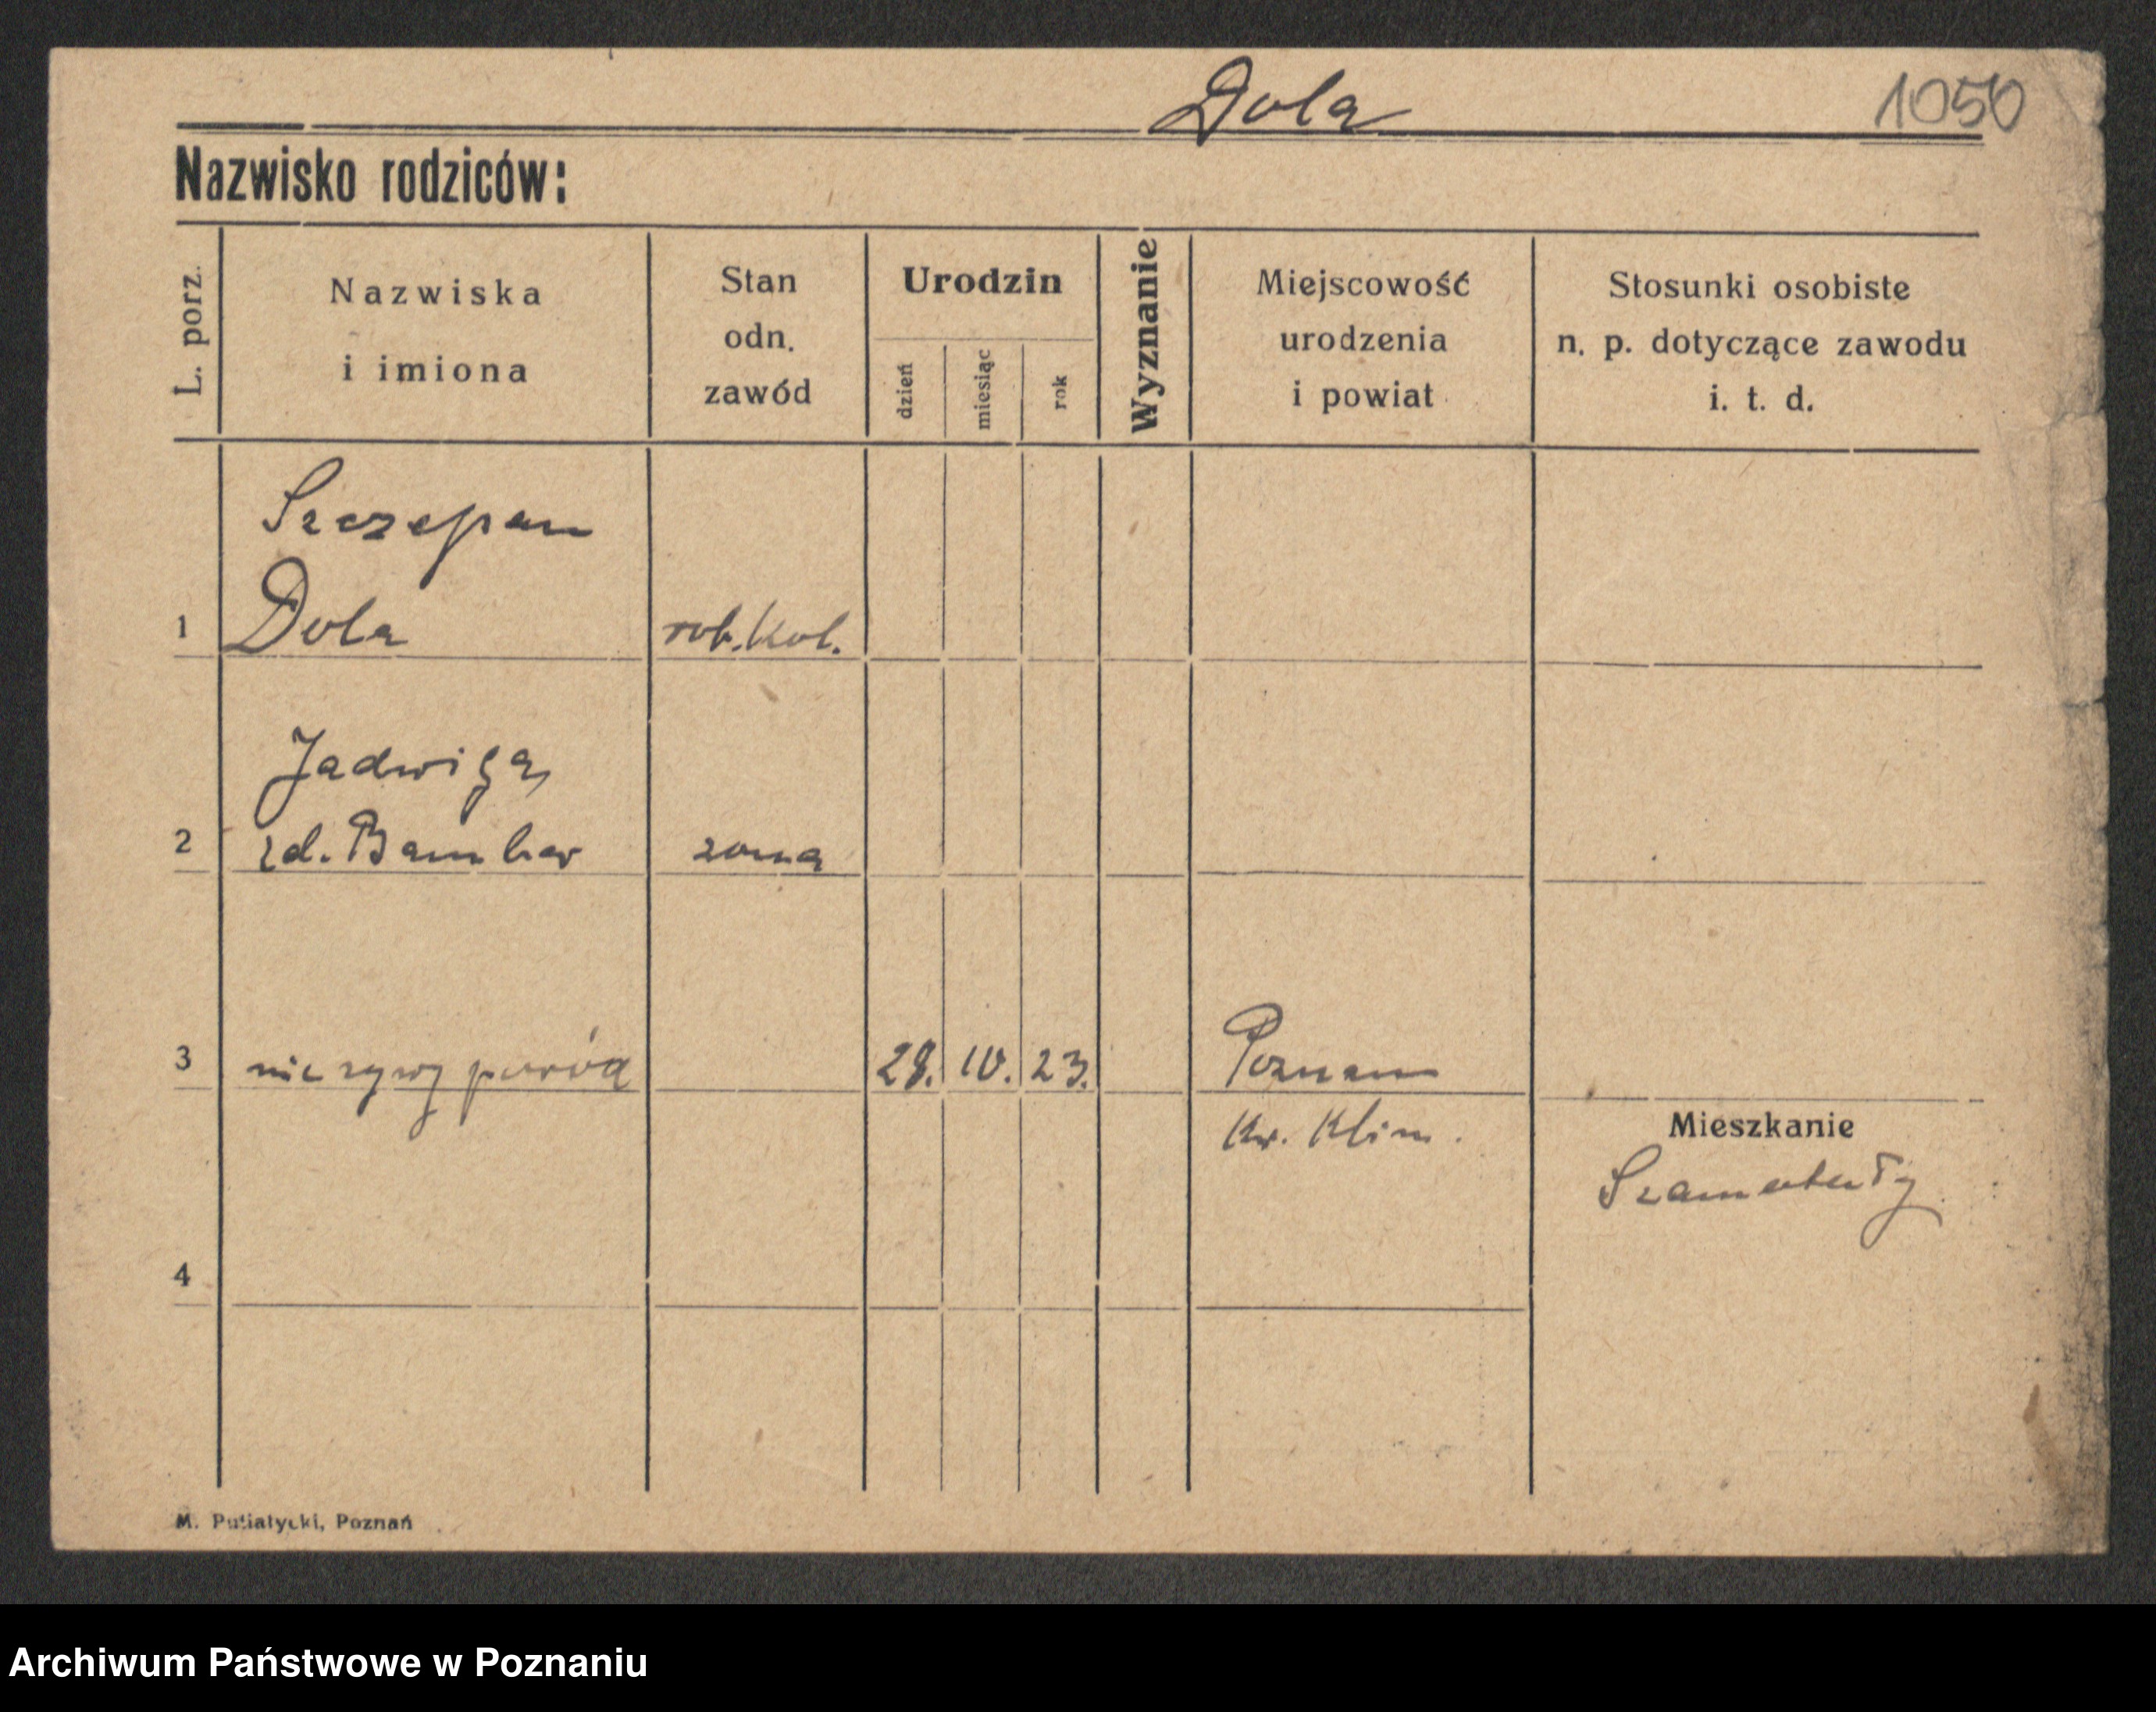 Dola
1050
Nazwisko rodziców:
L. porz.
Nazwiska
i imiona
Stan
odn.
zawód
Urodzin
dzień
miesiąc
rok
Wyznanie
Miejscowość
urodzenia
i powiat
Stosunki osobiste
n. p. dotyczące zawodu
i. t. d.
Szczepan
1 Dola rob. kol.
Jadwiga
2 zd. żona
3 nieżywy poród 28. 10. 23. Poznań
Kr. Klin.
Mieszkanie
Szamotuły
4
M. Putiatycki, Poznań
Archiwum Państwowe w Poznaniu